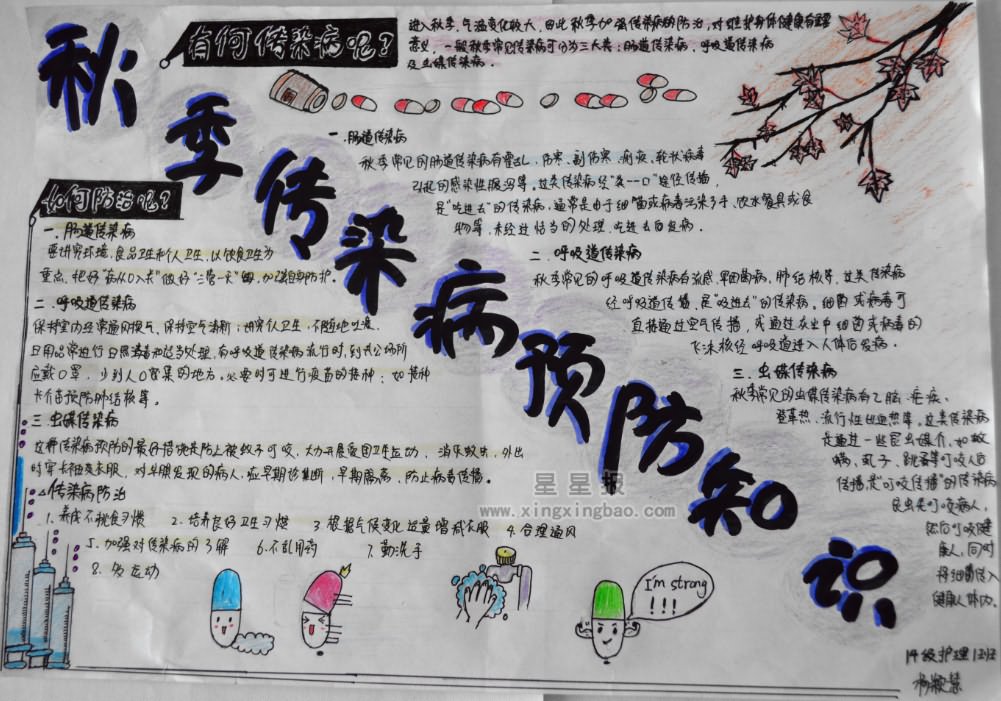 秋季传染病预防知识
有何传染病呢?
进入秋季,气温变化较大,因此秋季加强传染病的防治,对维护身体健康有重要
意义,一般秋季常见传染病可分为三大类:肠道传染病、呼吸道传染病
及虫媒传染病。
一.肠道传染病
秋季常见的肠道传染病有霍乱、伤寒、副伤寒、痢疾、轮状病毒
引起的感染性腹泻等。这类传染病经"粪--口"途径传播,
是"吃进去"的传染病,通常是由于细菌或病毒污染了手、饮水餐具或食
物等,未经过恰当的处理,吃进去后发病。
二.呼吸道传染病
秋季常见的呼吸道传染病有流感、军团菌病、肺结核等,这类传染病
经呼吸道传播,是"吸进去"的传染病。细菌或病毒可
直接通过空气传播,或通过灰尘中细菌或病毒的
飞沫核经呼吸道进入人体后发病。
三.虫媒传染病
秋季常见的虫媒传染病有乙脑、疟疾、
登革热、流行性出血热等。这类传染病
是通过一些昆虫媒介,如蚊
螨、虱子、跳蚤等叮咬人后
传播,是"叮咬传播"的传染病
昆虫先叮咬病人,
然后叮咬健
康人,同时
将细菌传入
健康人体内。
如何防治呢?
一.肠道传染病
要讲究环境、食品卫生和个人卫生,以饮食卫生为
重点,把好"病从口入关"做好"三管一灭",加强自身防护。
二.呼吸道传染病
保持室内经常通风换气,保持空气清新;讲究个人卫生,不随地吐痰、
日用品常进行日照消毒和适当处理,有呼吸道传染病流行时,到公共场所
应戴口罩,少到人口密集的地方。必要时可进行疫苗的接种,如接种
卡介苗预防肺结核等。
三.虫媒传染病
这种传染病预防的最好措施是防止被蚊子叮咬,大力开展爱国卫生运动,消灭蚊虫,外出
时穿长袖类衣服,对早期发现的病人,应早期诊断,早期隔离,防止病毒传播。
传染病防治
1.养成不挑食习惯 2.培养良好卫生习惯 3.根据气候变化适量增减衣服 4.合理通风
5.加强对传染病的了解 6.不乱用药 7.勤洗手
8.多运动
I'm strong
!!!
星星报
www.xingxingbao.com
14级护理12班